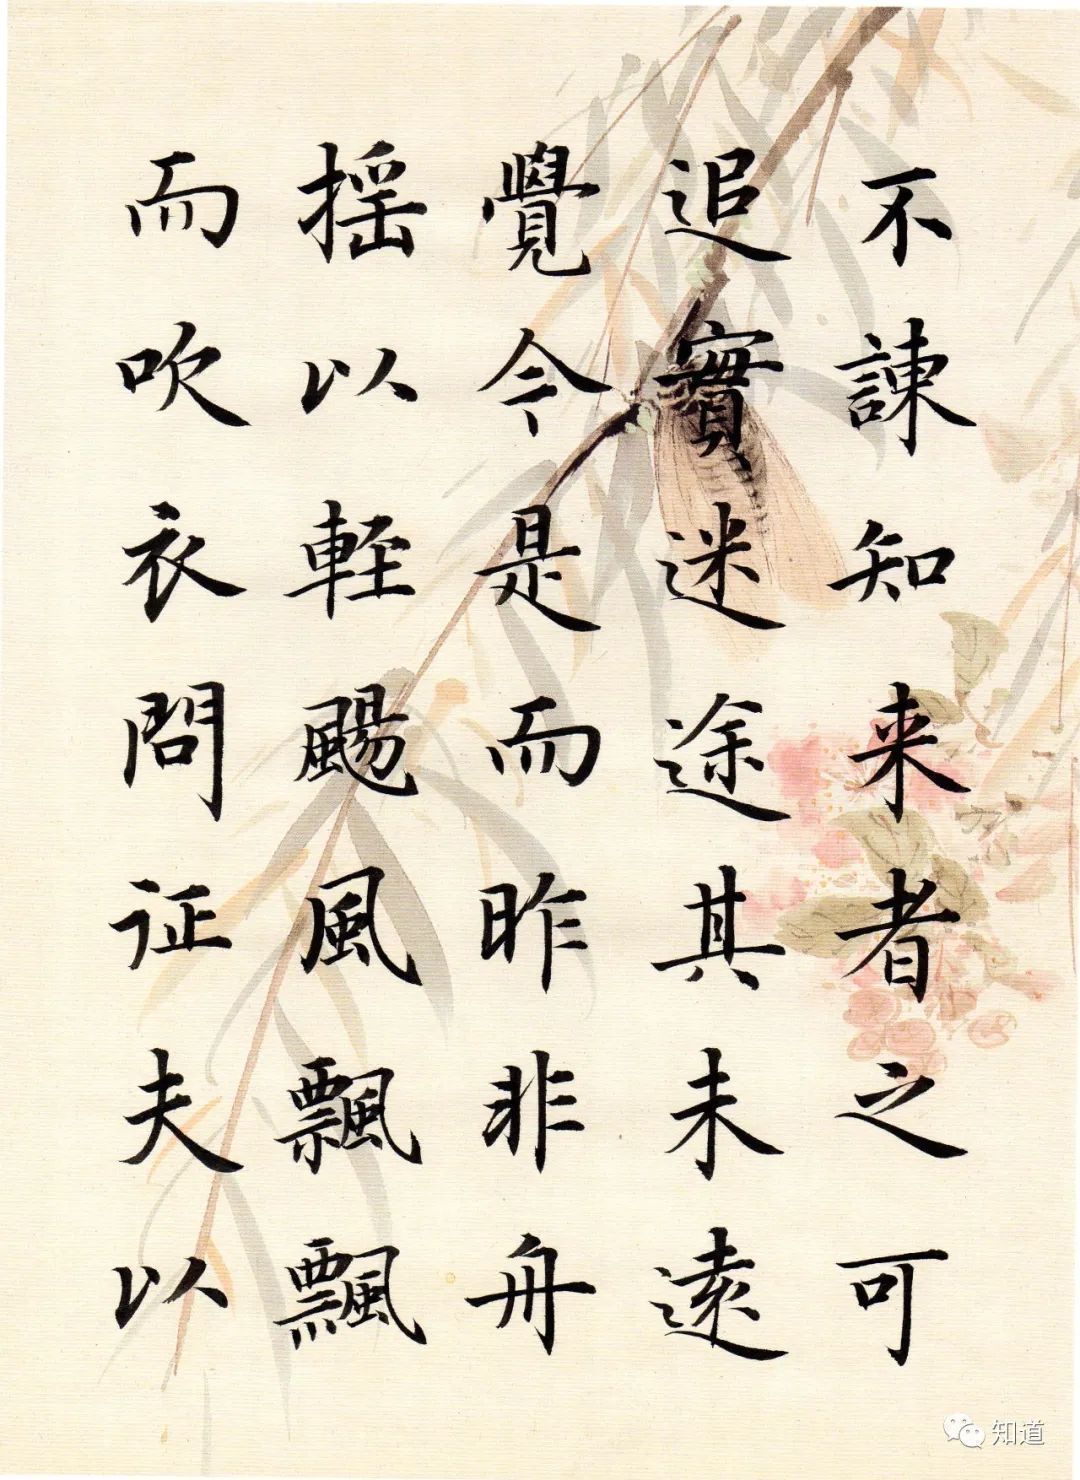 不諌知来者之可
追實迷途其未遠
覺今是而昨非舟
揺以軽颺風飄飄
而吹衣問征夫以
知道